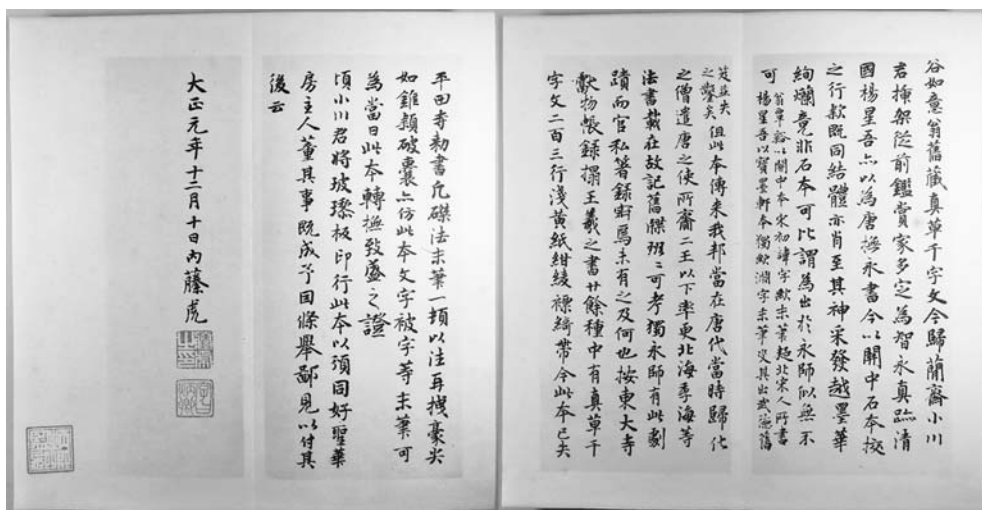 谷如意翁舊藏真草千字文今歸蘭齋小川
君插架從前鑑賞家多定為智永真跡清
國楊星吾亦以為唐撫永書今以關中石本校
之行款既同結體亦肖至其神采發越墨華
絢爛竟非石本可比謂為出於永師似無不
可
翁覃谿以關中本宋初諱字欵末筆疑北宋人所書
楊星吾以寶墨軒本獨欵淵字末筆定其出武德舊
笈並失
之鑿矣
但此本傳來我邦當在唐代當時歸化
之僧遣唐之使所齎二王以下率更北海李海等
法書載在故記舊牒班々可考獨永師有此劇
蹟而官私著錄寂焉未有之及何也按東大寺
獻物帳錄搨王羲之書廿餘種中有真草千
字文二百三行淺黃紙紺綾褾綺帶今此本已失
平田寺勅書凡磔法末筆一頓以注再拽豪尖
如錐穎破囊亦仿此本文字被字等末筆可
為當日此本轉撫致盛之證
頃小川君將玻瓈板印行此本以頒同好聖華
房主人董其事既成予因條舉鄙見以付其
後云
大正元年十二月十日內藤虎